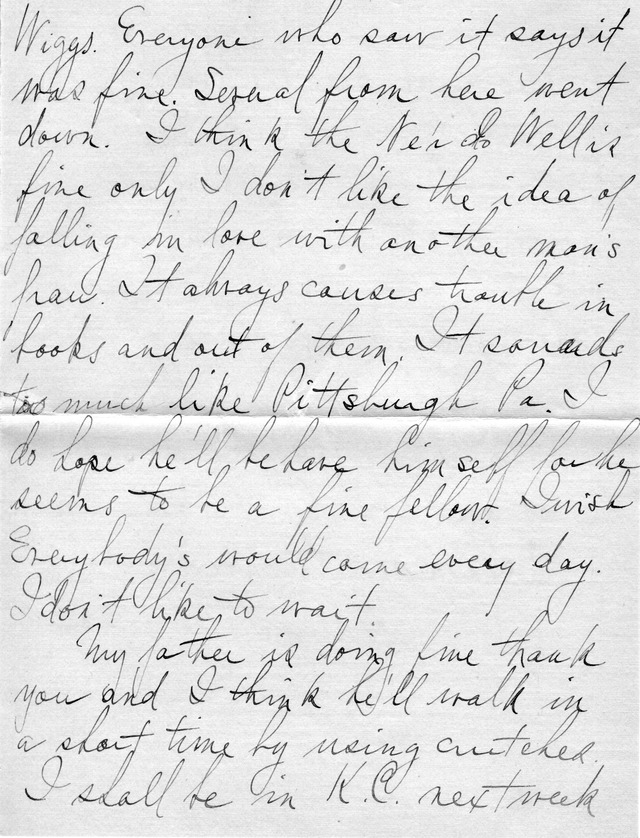 Wiggs. Everyone who saw it says it
was fine. Several from here went
down. I think the Ne'r do Well is
fine only I don't like the idea of
falling in love with another man's
frau. It always causes trouble in
books and out of them. It sounds
too much like Pittsburgh Pa. I
do hope he'll behave himself for he
seems to be a fine fellow. I wish
Everybody's would come every day.
I don't like to wait.
My father is doing fine thank
you and I think he'll walk in
a short time by using crutches.
I shall be in K.C. next week